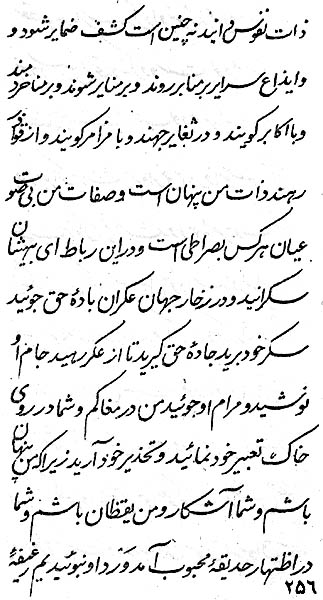 ذات نفوس دانید نه چنین است کشف ضمایر شود و
و ایذاع سرایر بر منابر روند و بر منایر شوند و بر منا خرد مند
و با اکابر گویند و در ثغایر جهند و با مزامر گویند و از قوادر
رهند ذات من پنهان است و صفات من بی صوت
عیان هر کس بصراطی است و در این رباط ای بیهشان
سکرانید و در زخار جهان عکران باده حق جوئید
سکر خود برید جاده حق گیرید تا از عکر رهید جام او
نوشید و مرام او جوئید من در مغاکم و شما در روی
خاک تعبیر خود نمائید و تحذیر خود آرید زیرا که من پنهان
باشم و شما آشکار و من یقظان باشم و شما
در اظتهار حدیقهٔ محبوب آمد و ورد او نبوئیدیم رغیفهٔ
۲۵۶